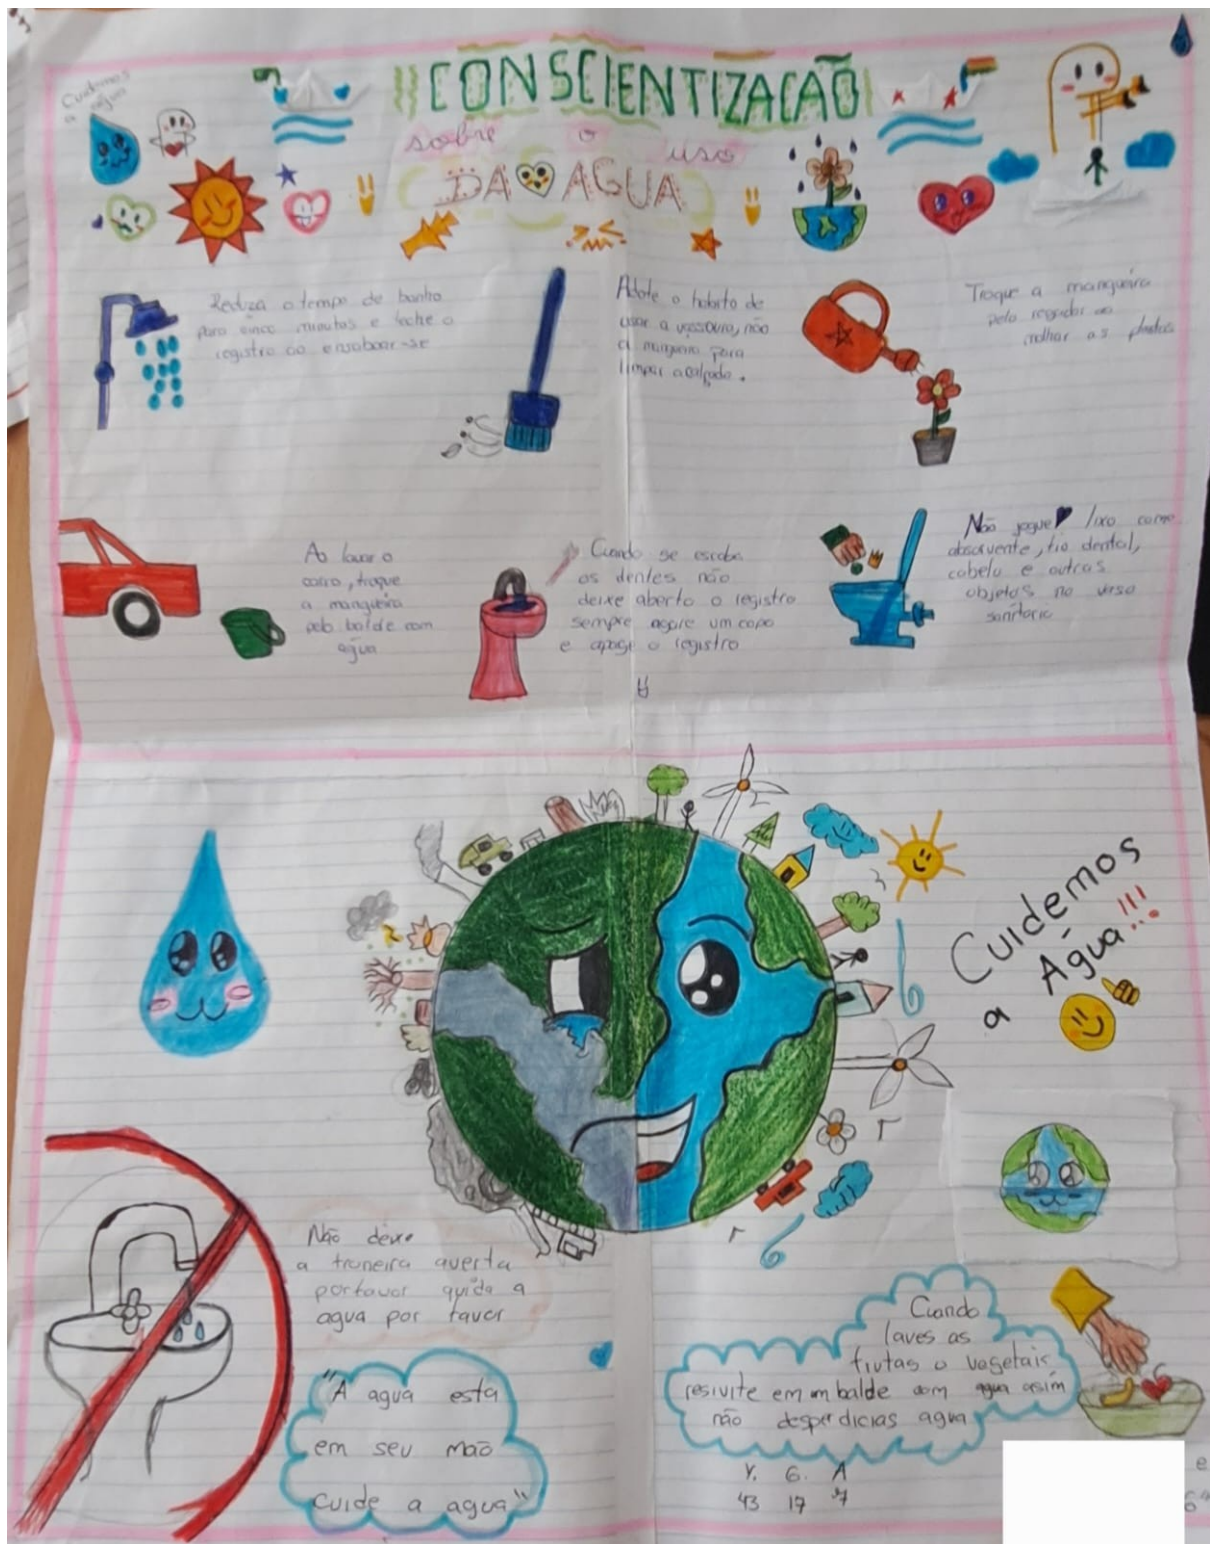 Cuidemos
a água
CONSCIENTIZAÇÃO
sobre o uso
DA AGUA
Reduza o tempo de banho
para cinco minutos e feche o
registro ao ensaboar-se
Adote o habito de
usar a vassoura, não
a mangueira para
limpar a calçada.
Troque a mangueira
pelo regador ao
molhar as plantas
Ao lavar o
carro, troque
a mangueira
pelo balde com
água
Cuando se escoba
os dentes não
deixe aberto o registro
sempre agare um copo
e apage o registro
Não jogue lixo como
absorvente, fio dental,
cabelo e outros
objetos no verso
sanitario
Cuidemos
a Água!!!
Não deixe
a truneira averta
porfavor quida a
agua por favor
"A agua esta
em seu mão
cuide a agua"
Cuando
laves as
frutas o vagetais
resivite em um balde com agua asim
não desperdicias agua
Y. G. A
43 17 7